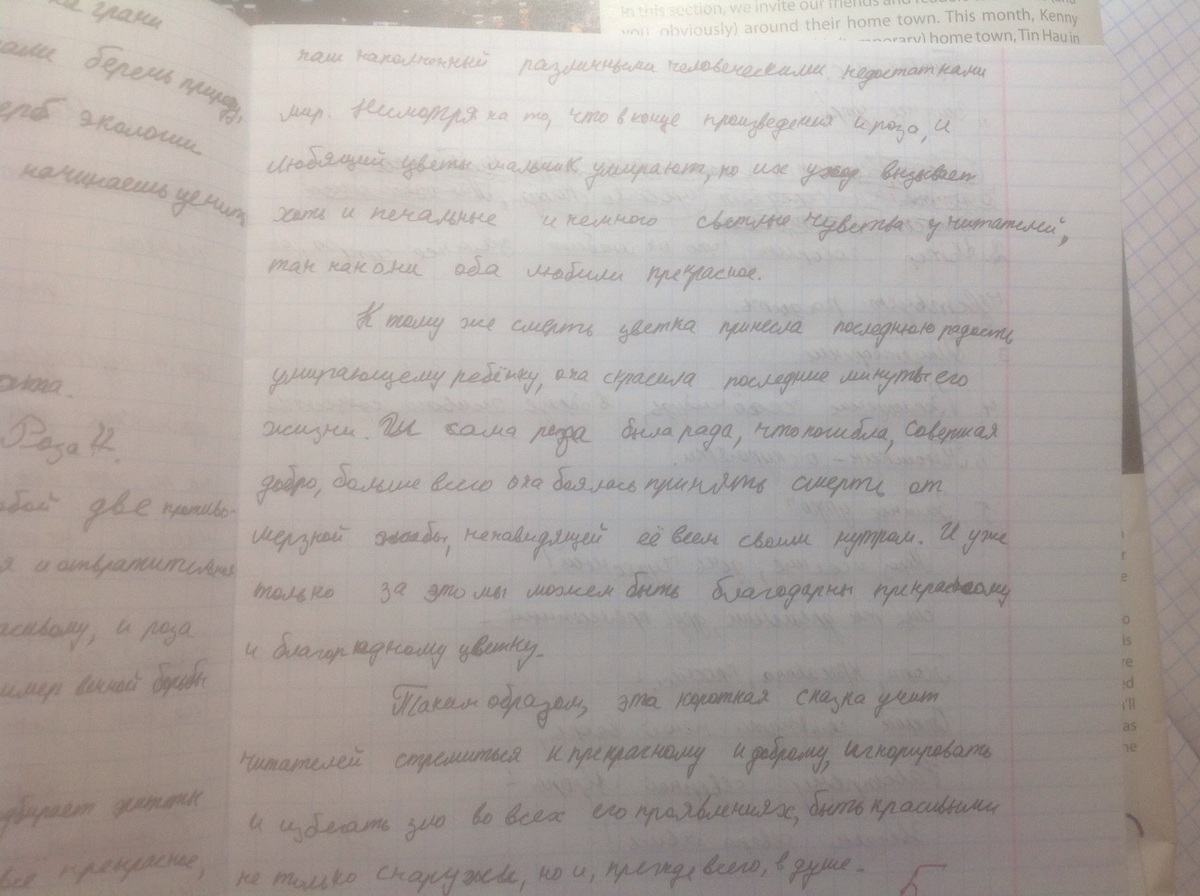 In this section, we invite our friends and
you obviously) around their home town. This month, Kenny
home town, Tin Hau in
на грани
беречь природу,
экологии
начинаешь ценить
Роза".
две противо-
и отвратительная
и роза
вечной борьбы
жизнь
прекрасное,
наш наполненный различными человеческими недостатками
мир. Несмотря на то, что в конце произведения и роза, и
любящий цветы мальчик умирают, но их уход вызывает
хоть и печальные и немного светлые чувства у читателей,
так как они оба любили прекрасное.
К тому же смерть цветка принесла последнюю радость
умирающему ребёнку, она скрасила последние минуты его
жизни. И сама роза была рада, что погибла, совершая
добро, больше всего она боялась принять смерть от
мерзкой жабы, ненавидящей её всем своим нутром. И уже
только за это мы можем быть благодарны прекрасному
и благородному цветку.
Таким образом, эта короткая сказка учит
читателей стремиться к прекрасному и доброму, игнорировать
и избегать зло во всех его проявлениях, быть красивыми
не только снаружи, но и, прежде всего, в душе.
5